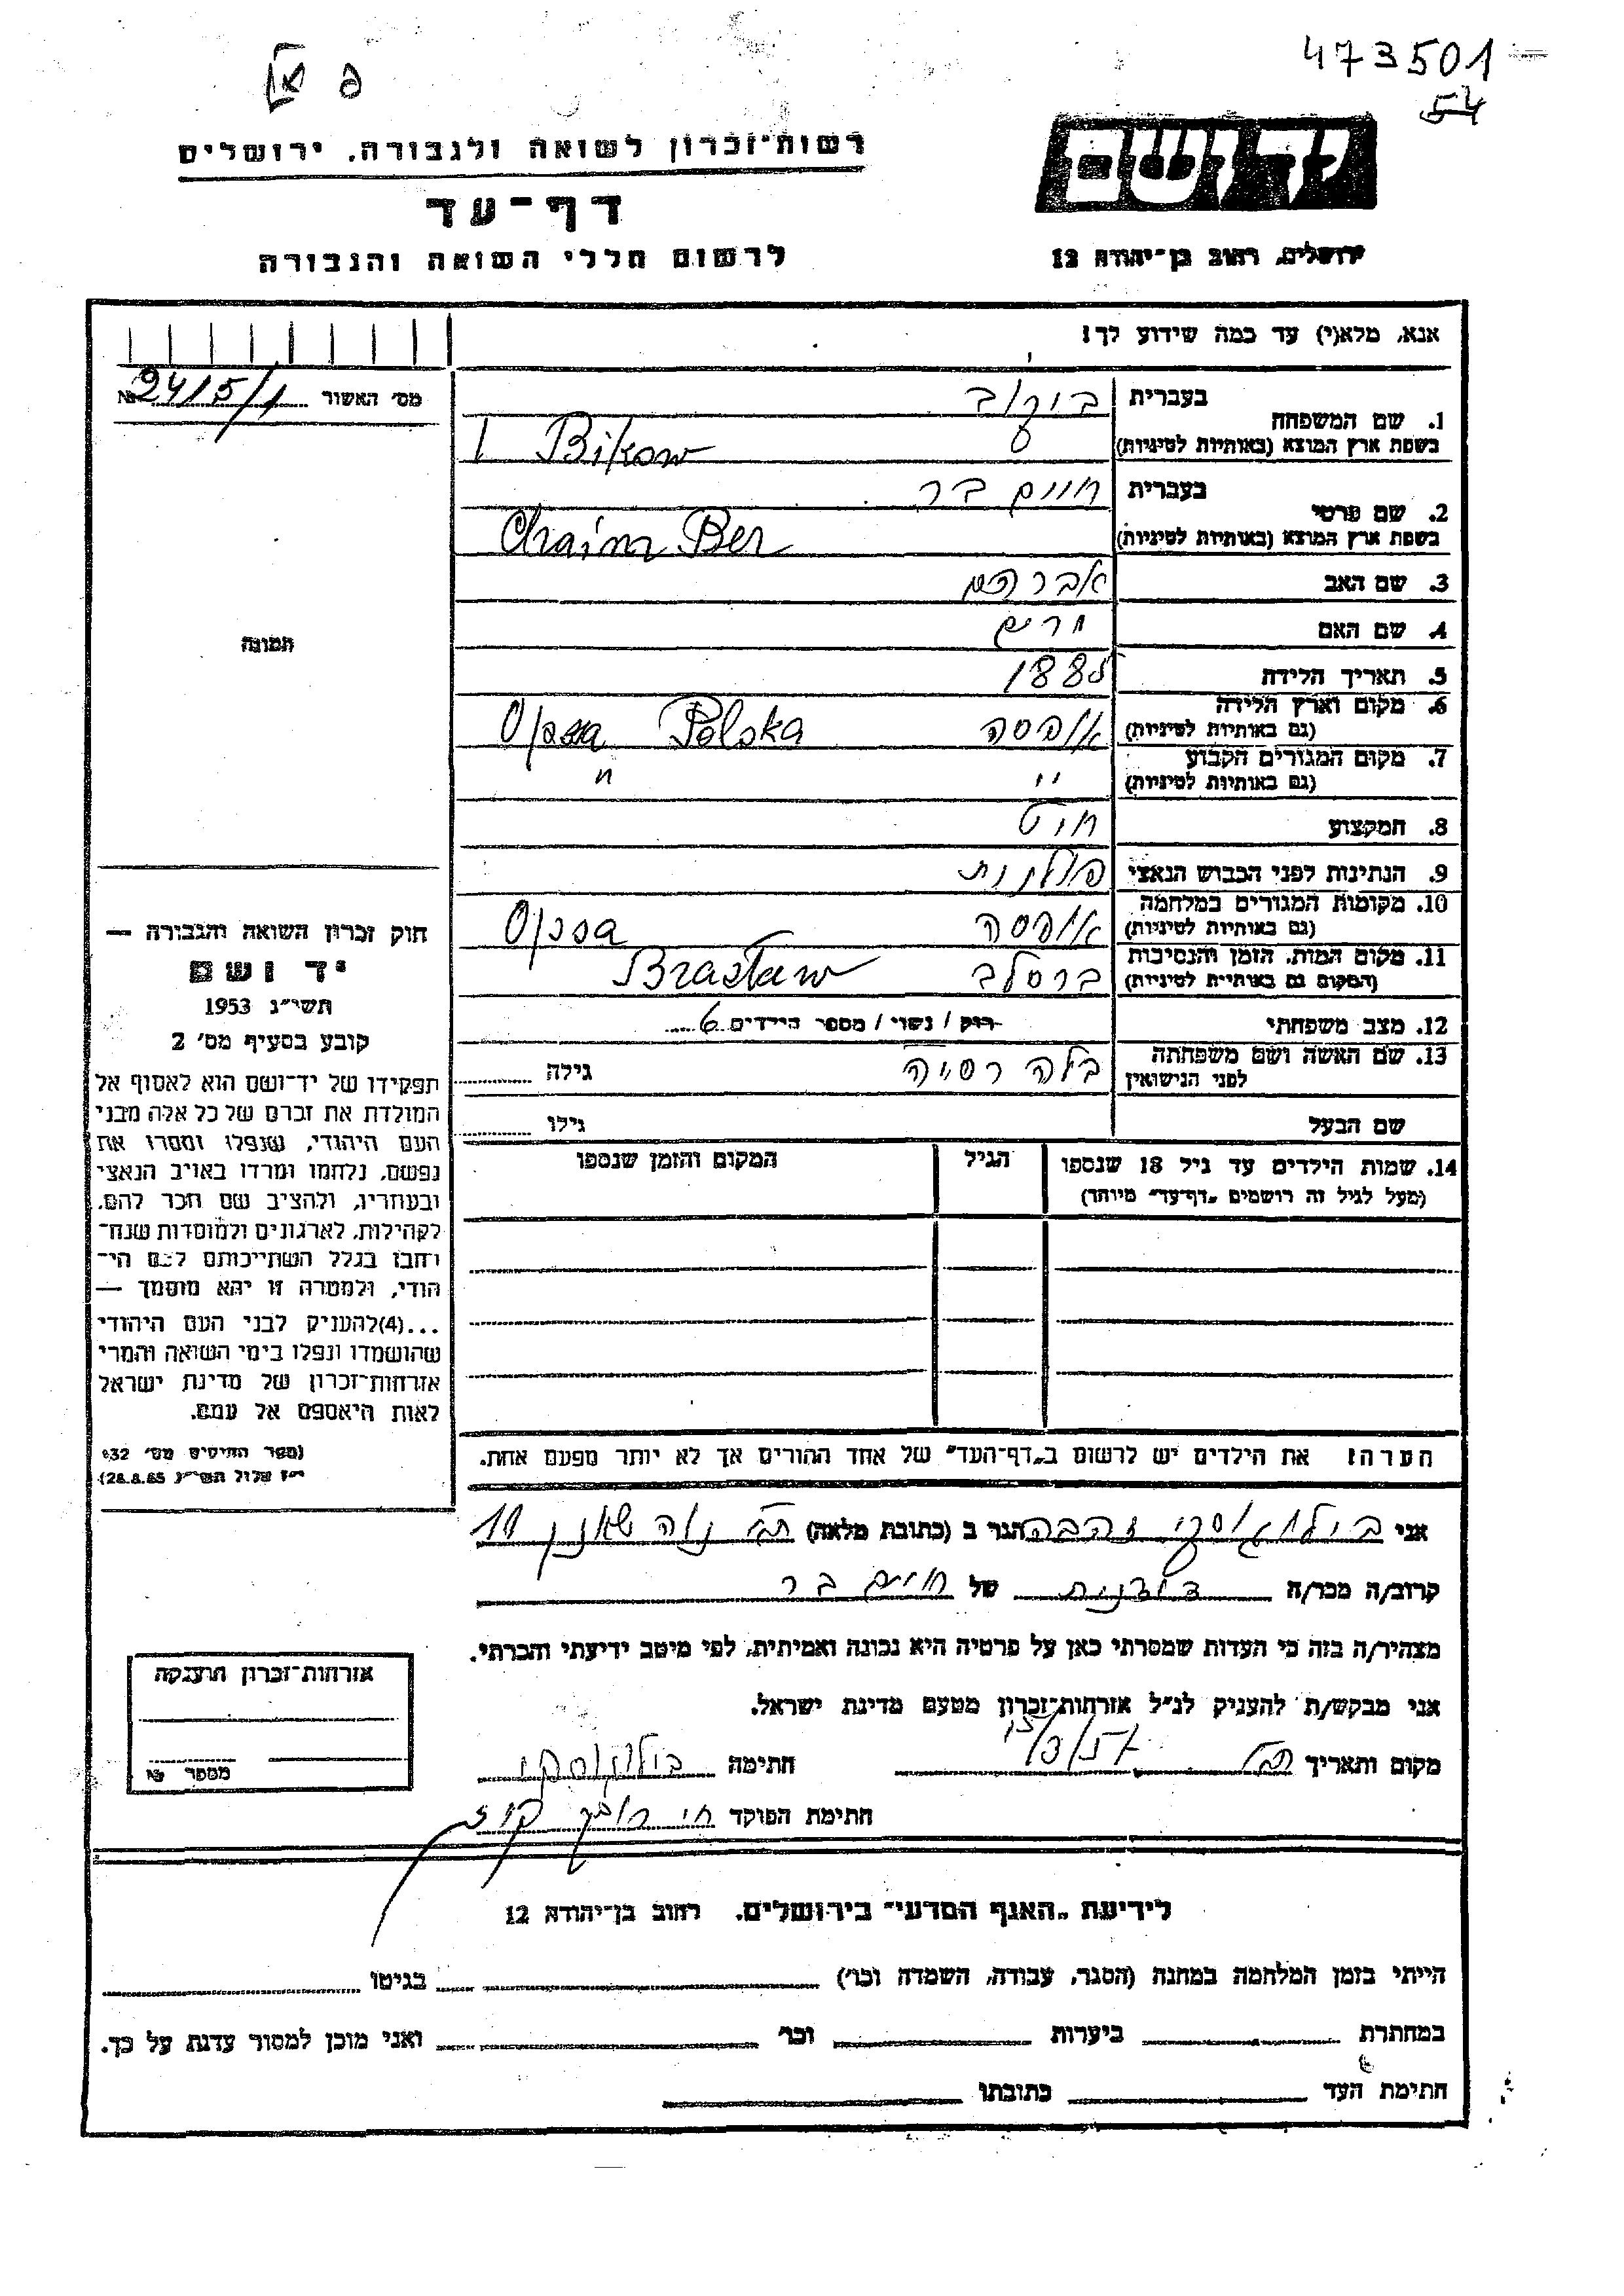 473501
54
פ
רשות־זכרון לשואה ולגבורה, ירושלים
דף־עד
לרשום חללי השואה והגבורה
יד ושם
ירושלים, רחוב בן־יהודה 12
אנא, מלא(י) עד כמה שידוע לך!
מס׳ האשור № 2415/1
1. שם המשפחה
בעברית ביקוב
בשפת ארץ המוצא (באותיות לטיניות) Bikow
2. שם פרטי
בעברית חיים בר
בשפת ארץ המוצא (באותיות לטיניות) Chaim Ber
3. שם האב אברהם
4. שם האם
5. תאריך הלידה 1885
6. מקום וארץ הלידה
(גם באותיות לטיניות) אופסה Opssa Polska
7. מקום המגורים הקבוע
(גם באותיות לטיניות) " "
8. המקצוע חיט
9. הנתינות לפני הכבוש הנאצי פולנית
10. מקומות המגורים במלחמה
(גם באותיות לטיניות) אופסה Opssa
11. מקום המות, הזמן והנסיבות
(המקום גם באותיות לטיניות) ברסלב Brastaw
12. מצב משפחתי רוק / נשוי / מספר הילדים 6
13. שם האשה ושם משפחתה
לפני הנישואין בלה רסיה גילה
שם הבעל גילו
14. שמות הילדים עד גיל 18 שנספו
(מעל לגיל זה רושמים „דף־עד” מיוחד)
הגיל
המקום והזמן שנספו
הערה: את הילדים יש לרשום ב„דף־העד” של אחד ההורים אך לא יותר מפעם אחת.
תמונה
חוק זכרון השואה והגבורה —
יד ושם
תשי״ג 1953
קובע בסעיף מס׳ 2
תפקידו של יד־ושם הוא לאסוף אל
המולדת את זכרם של כל אלה מבני
העם היהודי, שנפלו ומסרו את
נפשם, נלחמו ומרדו באויב הנאצי
ובעוזריו, ולהציב שם וזכר להם,
לקהילות, לארגונים ולמוסדות שנח־
רחבו בגלל השתייכותם לעם הי־
הודי, ולמטרה זו יהא מוסמך —
...(4)להעניק לבני העם היהודי
שהושמדו ונפלו בימי השואה והמרי
אזרחות־זכרון של מדינת ישראל
לאות היאספם אל עמם.
(ספר החוקים מס׳ 132
י״ז אלול תשי״ג 28.8.65)
אני זהבה הגר ב (כתובת מלאה) נוה שאנן 10
קרוב/ה מכר/ה של חיים בר
מצהיר/ה בזה כי העדות שמסרתי כאן על פרטיה היא נכונה ואמיתית, לפי מיטב ידיעתי והכרתי.
אני מבקש/ת להעניק לנ״ל אזרחות־זכרון מטעם מדינת ישראל.
מקום ותאריך חתימה
חתימת הפוקד
אזרחות־זכרון הוענקה
מספר №
לידיעת „האגף המדעי” בירושלים, רחוב בן־יהודה 12
הייתי בזמן המלחמה במחנה (הסגר, עבודה, השמדה וכו׳) בגיטו
במחתרת ביערות וכו׳ ואני מוכן למסור עדות על כך.
חתימת העד כתובתו